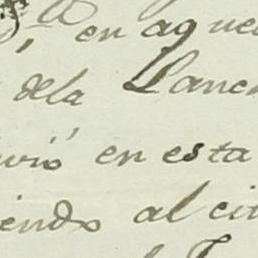 en aque
dela Lanc
vió en esta
iendo al cit